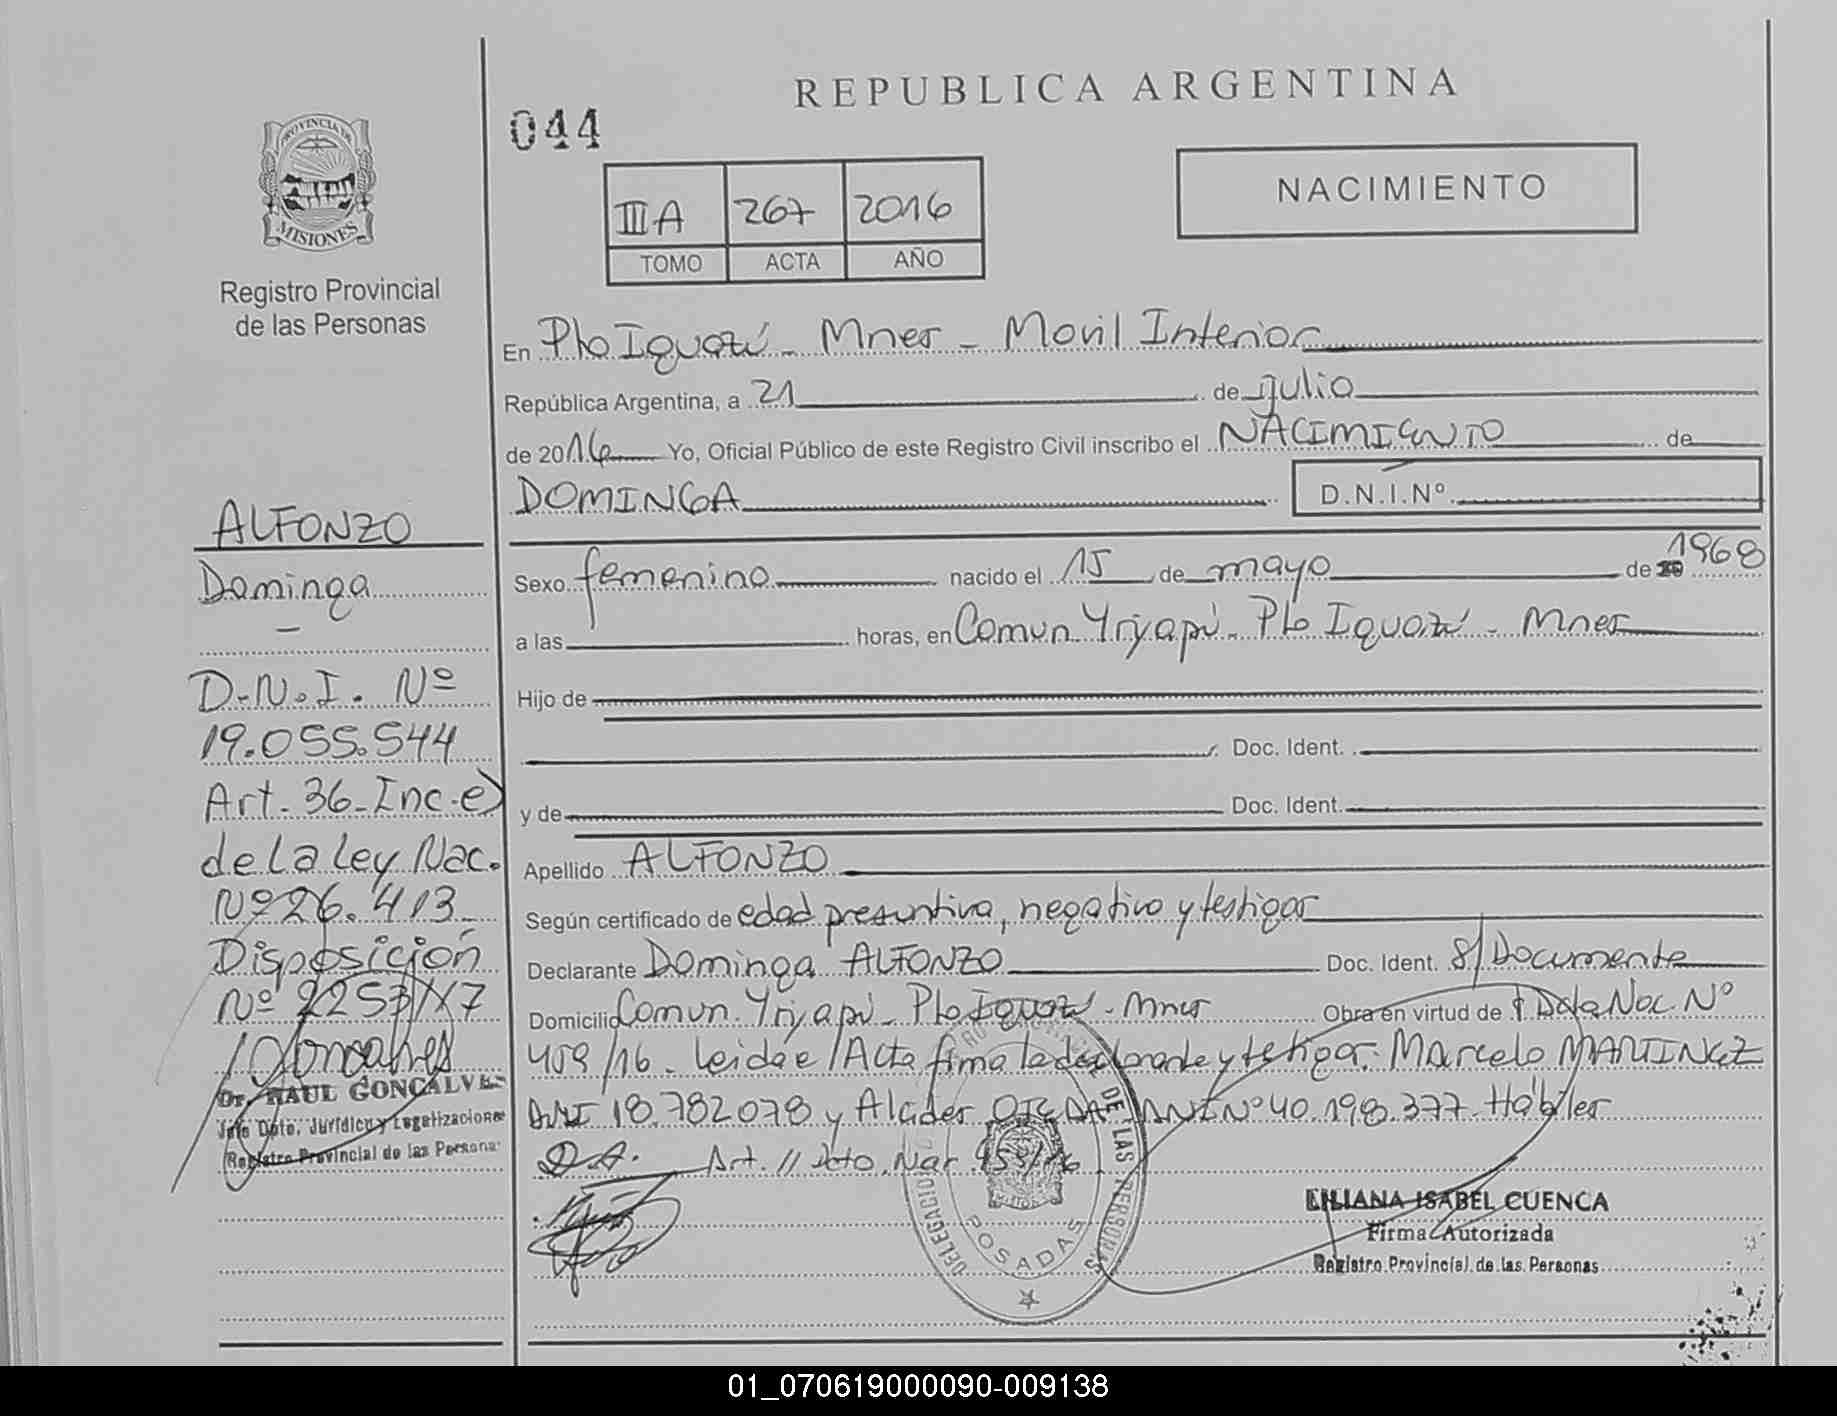 REPUBLICA ARGENTINA
044
NACIMIENTO
III A 267 2016
TOMO ACTA AÑO
PROVINCIA DE
MISIONES
Registro Provincial
de las Personas
En Pto Iguazú - Mnes - Movil Interior
República Argentina, a 21 de julio
de 2016 Yo, Oficial Público de este Registro Civil inscribo el NACIMIENTO de
DOMINGA D.N.I.Nº
Sexo femenino nacido el 15 de mayo de 20 1968
a las horas, en Comun. Yriyapú - Pto Iguazú - Mnes
Hijo de
Doc. Ident.
y de Doc. Ident.
Apellido ALFONZO
Según certificado de edad presuntiva, negativo y testigos
Declarante Dominga ALFONZO Doc. Ident. S/Documento
Domicilio Comun. Yriyapú - Pto Iguazú - Mnes Obra en virtud de Dcto Nac. Nº
459/16 - Leida e/Acta firma la declarante y testigos: Marcelo MARTINEZ
DNI 18.782078 y DNI Nº 40.198.377. Hábiles
D.A. Art. 11 Dcto. Nac.
ALFONZO
Dominga
D.N.I. Nº
19.055.544
Art. 36 - Inc. e)
de La Ley Nac.
Nº 26.413
Disposición
Nº 2253/17
Dr. RAUL GONCALVES
Jefe Dpto. Jurídico y Legalizaciones
Registro Provincial de las Personas
DELEGACION
DE LAS PERSONAS
POSADAS
LILIANA ISABEL CUENCA
Firma Autorizada
Registro Provincial de las Personas
01_070619000090-009138